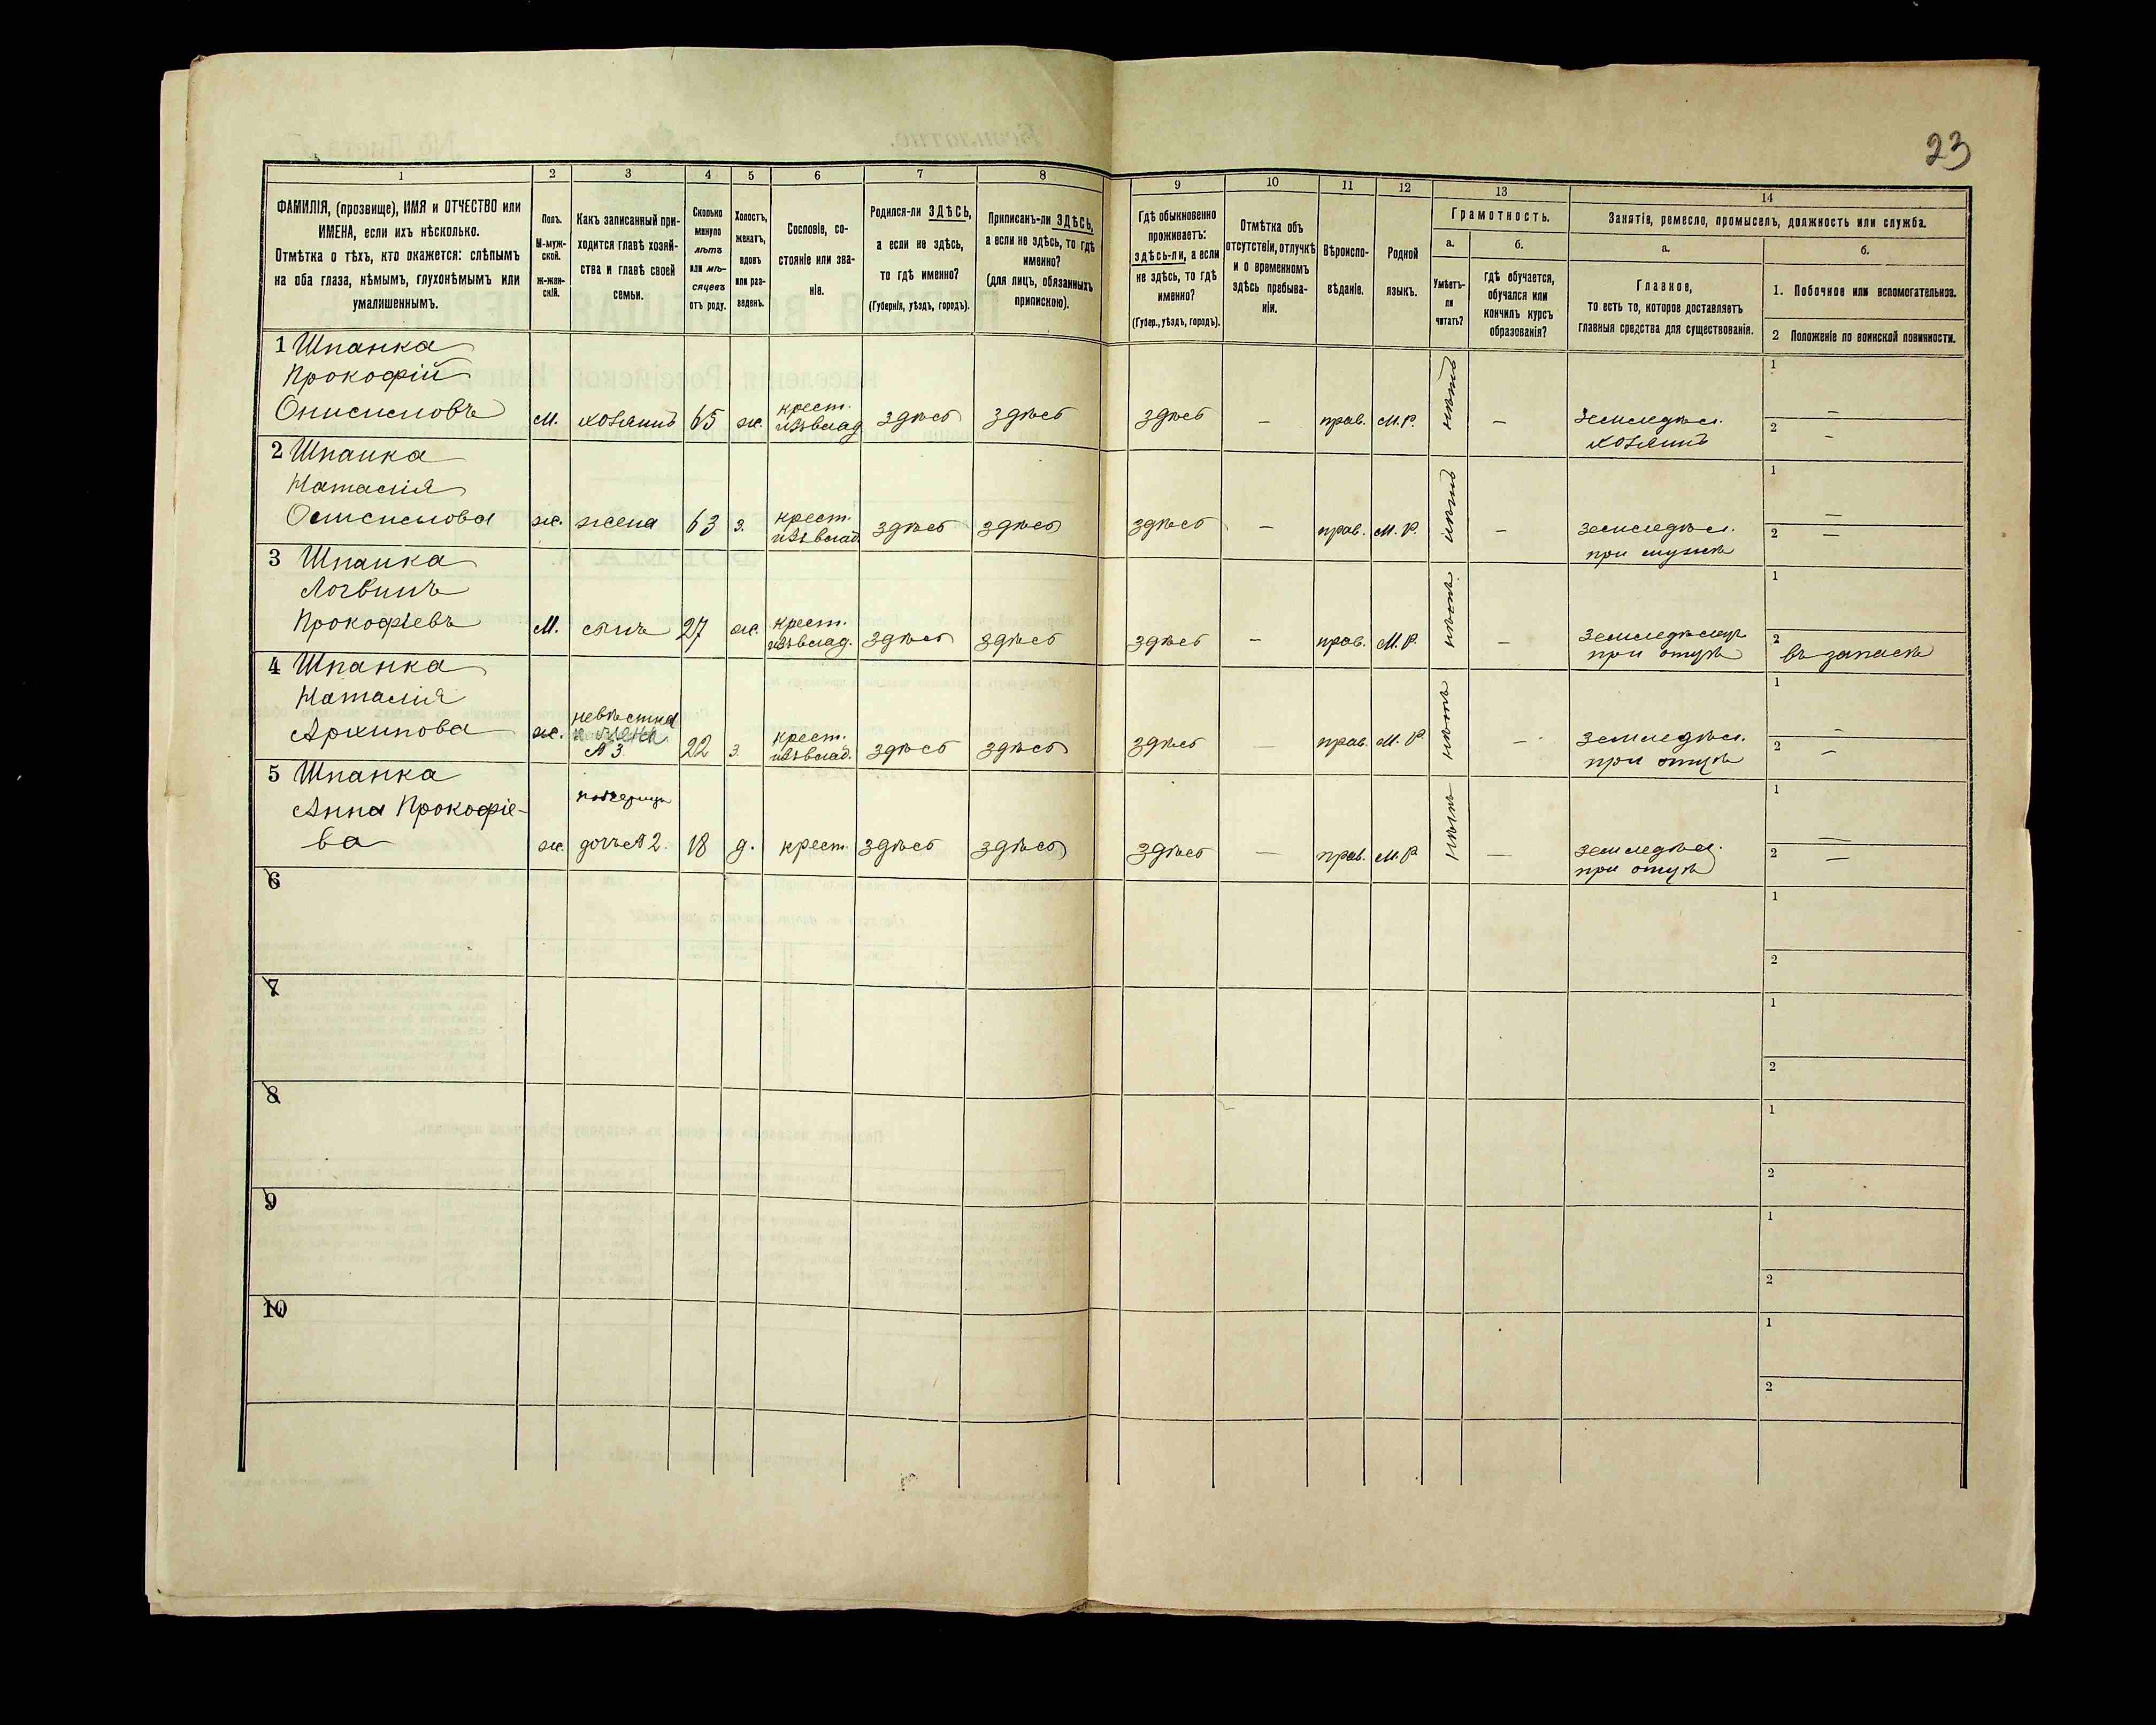 23
1
2
3
4
5
6
7
8
9
10
11
12
13
14
ФАМИЛІЯ, (прозвище), ИМЯ и ОТЧЕСТВО или
ИМЕНА, если ихъ нѣсколько.
Отмѣтка о тѣхъ, кто окажется: слѣпымъ
на оба глаза, нѣмымъ, глухонѣмымъ или
умалишеннымъ.
Полъ.
М-муж-
ской.
ж-жен-
скій.
Какъ записанный при-
ходится главѣ хозяй-
ства и главѣ своей
семьи.
Сколько
минуло
лѣтъ
или мѣ-
сяцевъ
отъ роду.
Холостъ,
женатъ,
вдовъ
или раз-
веденъ.
Сословіе, со-
стояніе или зва-
ніе.
Родился-ли ЗДѢСЬ,
а если не здѣсь,
то гдѣ именно?
(Губернія, уѣздъ, городъ).
Приписанъ-ли ЗДѢСЬ,
а если не здѣсь, то гдѣ
именно?
(для лицъ, обязанныхъ
припискою).
Гдѣ обыкновенно
проживаетъ:
здѣсь-ли, а если
не здѣсь, то гдѣ
именно?
(Губер., уѣздъ, городъ).
Отмѣтка объ
отсутствіи, отлучкѣ
и о временномъ
здѣсь пребыва-
ніи.
Вѣроиспо-
вѣданіе.
Родной
языкъ.
Грамотность.
а.
Умѣетъ-
ли
читать?
б.
гдѣ обучается,
обучался или
кончилъ курсъ
образованія?
Занятіе, ремесло, промыселъ, должность или служба.
а.
Главное,
то есть то, которое доставляетъ
главныя средства для существованія.
б.
1. Побочное или вспомогательное.
2 Положеніе по воинской повинности.
1 Шпанка
Прокофій
Онисимовъ
м. хозяинъ 65 ж. крест. изъ влад. здѣсь здѣсь здѣсь — прав. М.Р. нѣтъ — Земледѣл. хозяинъ
1 —
2 —
2 Шпанка
Наталія
Онисимова
ж. жена 63 з. крест. изъ влад. здѣсь здѣсь здѣсь — прав. М.Р. нѣтъ — земледѣл. при мужѣ
1 —
2 —
3 Шпанка
Логвинъ
Прокофіевъ
М. сынъ 27 ж. крест. изъ влад. здѣсь здѣсь здѣсь — прав. М.Р. нѣтъ — земледѣлецъ при отцѣ
1
2 въ запасѣ
4 Шпанка
Наталія
Архипова
ж. невѣстка
жена
№3 22 з. крест. изъ влад. здѣсь здѣсь здѣсь — прав. М.Р. нѣтъ — земледѣл. при отцѣ
1 —
2 —
5 Шпанка
Анна Прокофіе-
ва
ж. падчерица
дочь №2. 18 д. крест. здѣсь здѣсь здѣсь — прав. М.Р. нѣтъ — земледѣл. при отцѣ
1 —
2 —
6
1
2
7
1
2
8
1
2
9
1
2
10
1
2